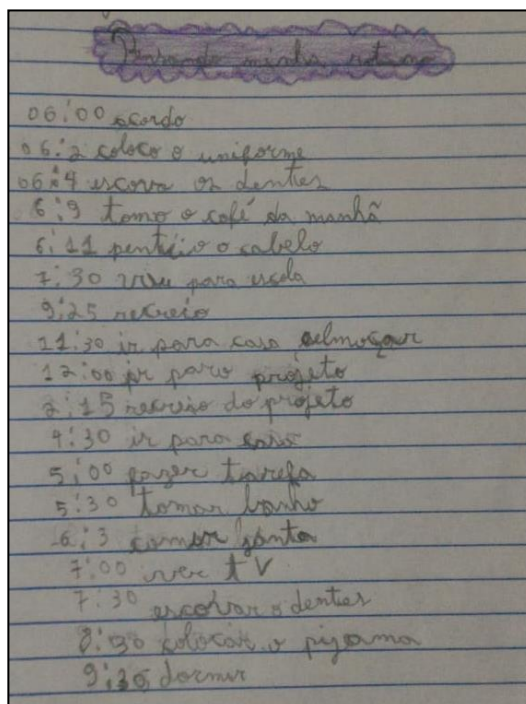 minha rotina
06:00 acordo
06:2 coloco o uniforme
06:4 escova os dentes
6:9 tomo o café da manhã
6:11 penteio o cabelo
7:30 vou para escola
9:25 recreio
11:30 ir para casa almoçar
12:00 ir para projeto
2:15 recreio do projeto
4:30 ir para casa
5:00 fazer tarefa
5:30 tomar banho
6:3 comer janta
7:00 ver tV
7:30 escovar o dentes
8:30 colocar o pijama
9:30 dormir